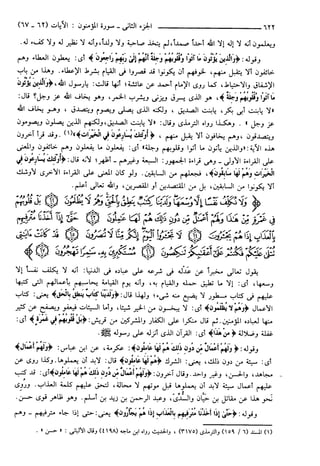 ٦٢٢ الجزء الثاني - سورة المؤمنون : الآيات (٦٢ - ٦٧)
ويعلمون أنه لا إله إلا الله أحداً صمداً، لم يتخذ صاحبة ولا ولداً، وأنه لا نظير له ولا كفء له.
وقوله : ﴿والذين يؤتون ما آتوا وقلوبهم وجلة أنهم إلى ربهم راجعون﴾ أي : يعطون العطاء وهم
خائفون ألا يتقبل منهم، لخوفهم أن يكونوا قد قصروا في القيام بشرط الإعطاء. وهذا من باب
الإشفاق والاحتياط، كما روى الإمام أحمد عن عائشة؛ أنها قالت: يارسول الله، ﴿والذين يؤتون
ما آتوا وقلوبهم وجلة﴾، هو الذي يسرق ويزني ويشرب الخمر، وهو يخاف الله عز وجل؟ قال:
«لا يابنت أبي بكر، يابنت الصديق، ولكنه الذي يصلي ويصوم ويتصدق، وهو يخاف الله
عز وجل». وهكذا رواه الترمذي وقال: «لا يابنت الصديق، ولكنهم الذين يصلون ويصومون
ويتصدقون، وهم يخافون ألا يقبل منهم، ﴿أولئك يسارعون في الخيرات﴾»(١). وقد قرأ آخرون
هذه الآية: «والذين يأتون ما أتوا وقلوبهم وجلة» أي: يفعلون ما يفعلون وهم خائفون والمعنى
على القراءة الأولى - وهي قراءة الجمهور: السبعة وغيرهم - أظهر؛ لأنه قال: ﴿أولئك يسارعون في
الخيرات وهم لها سابقون﴾، فجعلهم من السابقين. ولو كان المعنى على القراءة الأخرى لأوشك
ألا يكونوا من السابقين، بل من المقتصدين أو المقصرين، والله تعالى أعلم.
في غمرة من هذا ولهم أعمال من دون ذلك هم لها عاملون
يقول تعالى مخبراً عن عدله في شرعه على عباده في الدنيا: أنه لا يكلف نفساً إلا
وسعها، أي: إلا ما تطيق حمله والقيام به، وأنه يوم القيامة يحاسبهم بأعمالهم التي كتبها
عليهم في كتاب مسطور لا يضيع منه شيء، ولهذا قال: ﴿ولدينا كتاب ينطق بالحق﴾ يعني: كتاب
الأعمال ﴿وهم لا يظلمون﴾ أي: لا يبخسون من الخير شيئا، وأما السيئات فيعفو ويصفح عن كثير
منها لعباده المؤمنين. ثم قال منكرا على الكفار والمشركين من قريش: ﴿بل قلوبهم في غمرة﴾ أي:
غفلة وضلالة ﴿من هذا﴾ أي: القرآن الذي أنزله على رسوله.
وقوله: ﴿ولهم أعمال من دون ذلك هم لها عاملون﴾: عكرمة، عن ابن عباس: ﴿ولهم أعمال﴾
أي: سيئة من دون ذلك، يعني: الشرك ﴿هم لها عاملون﴾ قال: لابد أن يعملوها. وكذا روي عن
مجاهد، والحسن، وغير واحد. وقال آخرون: ﴿ولهم أعمال من دون ذلك هم لها عاملون﴾ أي: قد كتب
عليهم أعمال سيئة لابد أن يعملوها قبل موتهم لا محالة، لتحق عليهم كلمة العذاب. وروي
نحو هذا عن مقاتل بن حيان والسدي، وعبد الرحمن بن زيد بن أسلم. وهو ظاهر قوي حسن.
وقوله: ﴿حتى إذا أخذنا مترفيهم بالعذاب إذا هم يجأرون﴾ يعني: حتى إذا جاء مترفيهم - وهم
(١) المسند (٦ / ١٥٩) والترمذي (٣١٧٥)، والحديث رواه ابن ماجه (٤١٩٨) وقال الألباني: «حسن».